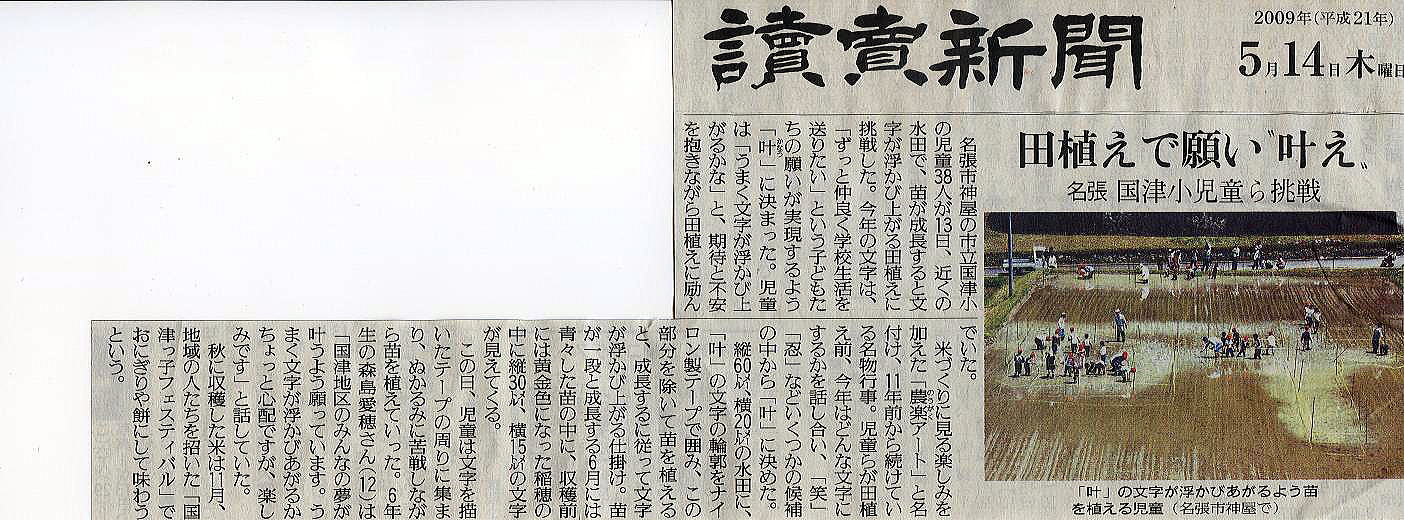 讀賣新聞
2009年(平成21年)
5月14日木曜日
田植えで願い〝叶え〟
名張 国津小児童ら挑戦
名張市神屋の市立国津小
の児童38人が13日、近くの
水田で、苗が成長すると文
字が浮かび上がる田植えに
挑戦した。今年の文字は、
「ずっと仲良く学校生活を
送りたい」という子どもた
ちの願いが実現するよう
「叶」に決まった。児童
は「うまく文字が浮かび上
がるかな」と、期待と不安
を抱きながら田植えに励ん
でいた。
米づくりに見る楽しみを
加えた「農楽アート」と名
付け、11年前から続けてい
る名物行事。児童らが田植
え前、今年はどんな文字に
するかを話し合い、「笑」
「忍」などいくつかの候補
の中から「叶」に決めた。
縦60㍍、横20㍍の水田に、
「叶」の文字の輪郭をナイ
ロン製テープで囲み、この
部分を除いて苗を植える
と、成長するに従って文字
が浮かび上がる仕掛け。苗
が一段と成長する6月には
青々した苗の中に、収穫前
には黄金色になった稲穂の
中に縦30㍍、横15㍍の文字
が見えてくる。
この日、児童は文字を描
いたテープの周りに集ま
り、ぬかるみに苦戦しなが
ら苗を植えていった。6年
生の森島愛穂さん(12)は
「国津地区のみんなの夢が
叶うよう願っています。う
まく文字が浮かびあがるか
ちょっと心配ですが、楽し
みです」と話していた。
秋に収穫した米は11月、
地域の人たちを招いた「国
津っ子フェスティバル」で
おにぎりや餅にして味わう
という。
「叶」の文字が浮かびあがるよう苗
を植える児童(名張市神屋で)